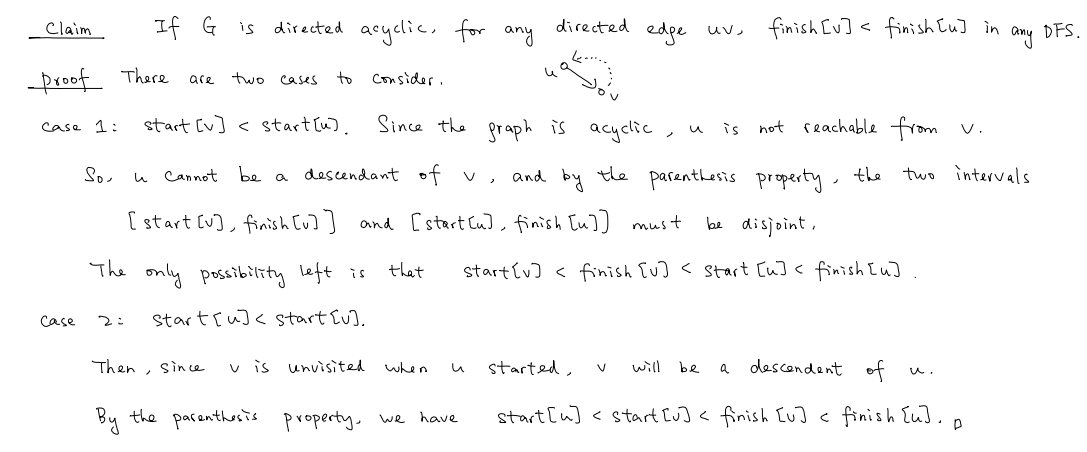 Claim If G is directed acyclic, for any directed edge uv, finish[v] < finish[u] in any DFS.
proof There are two cases to consider.
u v
case 1: start[v] < start[u]. Since the graph is acyclic, u is not reachable from v.
So, u cannot be a descendant of v, and by the parenthesis property, the two intervals
[start[v], finish[v]] and [start[u], finish[u]] must be disjoint.
The only possibility left is that start[v] < finish[v] < start[u] < finish[u].
case 2: start[u] < start[v].
Then, since v is unvisited when u started, v will be a descendent of u.
By the parenthesis property, we have start[u] < start[v] < finish[v] < finish[u]. □